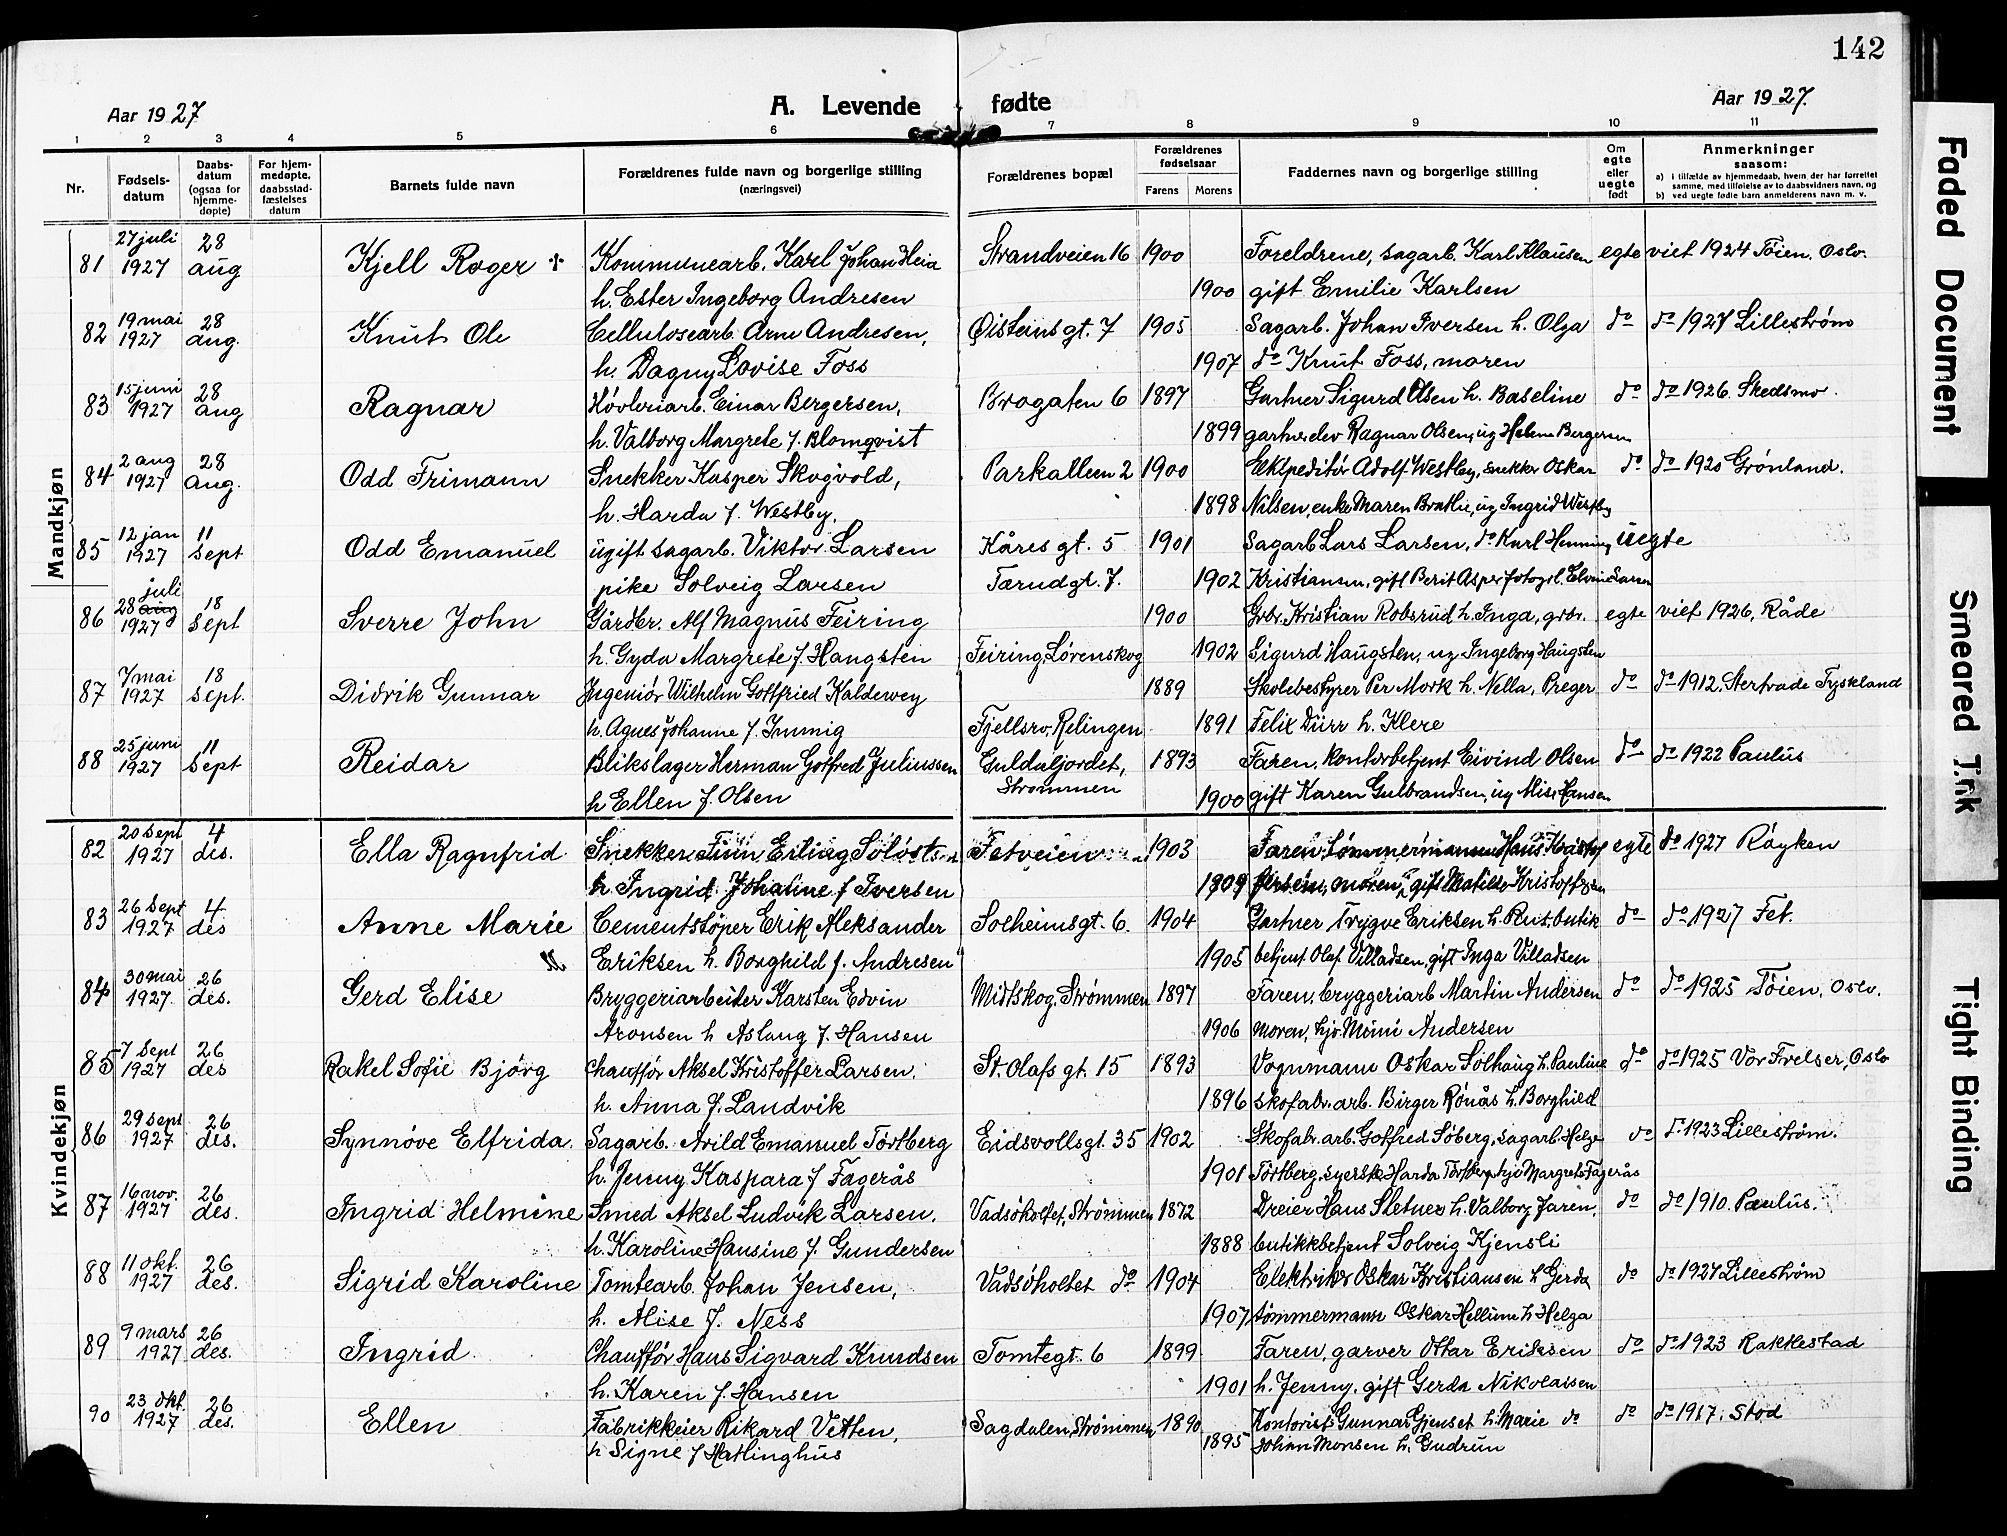 142
Aar 1927
A. Levende fødte
Aar 1927.
1 2 3 4 5 6 7 8 9 10 11
Nr.
Fødsels-
datum
Daabs-
datum
(ogsaa for
hjemme-
døpte)
For hjem-
medøpte.
daabsstad-
fæstelses
datum
Barnets fulde navn
Forældrenes fulde navn og borgerlige stilling
(næringsvei)
Forældrenes bopæl
Forældrenes
fødselsaar
Farens Morens
Faddernes navn og borgerlige stilling
Om
egte
eller
uegte
født
Anmerkninger
saasom:
a) i tilfælde av hjemmedaab, hvem der har forrettet
samme, med tilføielse av to daabsvidners navn, og
b) ved uegte fødte barn anmelderens navn m. v.
Mandkjøn
81 27 juli 1927 28 aug Kjell Roger + Kommunearb. Karl Johan Heia Strandveien 16 1900 Foreldrene, sagarb. Karl Klausen egte viet 1924 Tøien. Oslo.
h. Ester Ingeborg Andresen 1900 gift Emilie Karlsen
82 19 mai 1927 28 aug. Knut Ole Cellulosearb. Arne Andresen, Øisteinsgt. 7 1905 Sagarb. Johan Iversen h. Olga do do 1927 Lillestrøm
h. Dagny Lovise Foss 1907 do Knut Foss, moren
83 15 juni 1927 28 aug Ragnar Høvleriarb. Einar Bergersen, Brogaten 6 1897 Gartner Sigurd Olsen h. Baseline do do 1926. Skedsmo.
h. Valborg Margrete f. Blomqvist 1899 gartnerelev Ragnar Olsen, ug Helene Bergersen
84 2 aug 1927 28 Aug. Odd Frimann Snekker Kasper Skogvold, Parkalleen 2 1900 Ekspeditør Adolf Westby, snekker Oskar do do 1920 Grønland.
h. Harda f. Westby. 1898 Nilsen, enke Maren Brathe, ug Ingrid Westby
85 12 jan 1927 11 Sept Odd Emanuel ugift sagarb. Viktor Larsen Kåresgt. 5 1901 Sagarb Lars Larsen, do Karl Henning uegte
pike Solveig Larsen Tærudgt. 7. 1902 Kristiansen, gift Berit Asper fotogr. Elvine Larsen
86 28 juli aug 1927 18 Sept Sverre John Gårdbr. Alf Magnus Feiring 1900 Grbr. Kristian Robsrud h. Inga, grbr. egte viet 1926, Råde
h. Gyda Margrete f. Haugsten Feiring, Lørenskog 1902 Sigurd Haugsten, ug Ingeborg Haugsten
87 7 mai 1927 18 Sept. Didrik Gunnar Ingeniør Wilhelm Gottfried Kaldewey 1889 Skolebestyrer Per Mork h. Nella, Preger do do 1912. Sterkrade Tyskland
h. Agnes Johanne f. Immig Fjellsrv, Relingen 1891 Felix Dürr h. Klere
88 25 juni 1927 11 Sept Reidar Blikslager Herman Gotfred Juliussen Guldaljordet, 1893 Faren, kontorbetjent Eivind Olsen do do 1922 Paulus
h Ellen f. Olsen Strømmen 1900 gift Karen Gulbrandsen, ug Alise Hansen
Kvindekjøn
82 20 sept 1927 4 des. Ella Ragnfrid Snekker Finn Erling Soløstsen Fetveien 1903 Faren, tømmermann Hans Kristof egte do 1927 Røyken
h Ingrid Johanne f Iversen 1909 fersen, moren, gift Matilde Kristoffersen
83 26 Sept 1927 4 des Anne Marie Cementstøper Erik Aleksander Solheimsgt. 6. 1904 Gartner Trygve Eriksen h. Rut, butik do do 1927 Fet.
Eriksen h. Borghild f. Andresen 1905 betjent Olaf Villadsen, gift Inga Villadsen
84 30 mai 1927. 26 des. Gerd Elise Bryggeriarbeider Karsten Edvin Midtskog, Strømmen 1897 Faren, bryggeriarb Martin Andersen do do 1925 Tøien, Oslo.
Aronsen h Aslaug f. Hansen 1906 moren, hjv. Mimi Andersen
85 7 Sept 1927 26 des Rakel Sofie Bjørg Chauffør Aksel Kristoffer Larsen. St. Olafs gt. 15 1893 Vognmann Oskar Solhaug h. Pauline do do 1925 Vor Frelser, Oslo
h. Anna f. Landvik 1896 skofabr. arb. Birger Rønås h. Borghild
86 29 sept 1927 26 des. Synnøve Elfrida. Sagarb. Arild Emanuel Törtberg Eidsvollsgt. 35 1902 Skofabr. arb. Gotfred Søberg, sagarb. Helge do do 1923 Lillestrøm.
h. Jenny Kaspara f Fagerås 1901 Törtberg, syerske Harda Törtberg, hjv Margrete Fagerås
87 16 nov. 1927 26 des. Ingrid Helmine Smed Aksel Ludvik Larsen. Vadsøholtet, Strømmen 1872 Dreier Hans Sletner h. Valborg, faren, do do 1910. Paulus.
h. Karoline Hansine f. Gundersen 1888 butikkbetjent Solveig Kjensli
88 11 okt. 1927 26 des. Sigrid Karoline Tomtearb. Johan Jensen, Vadsøholtet do 1904 Elektriker Oskar Kristiansen h Gerda do do 1927 Lillestrøm
h. Alise f. Ness 1907 tømmermann Oskar Hellum h Helga
89 9 mars 1927 26 des. Ingrid Chauffør Hans Sigvard Knudsen Tomtegt. 6 1899 Faren, garver Ottar Eriksen do do 1923 Rakkestad
h. Karen f. Hansen 1901 h. Jenny. gift Gerda Nikolaisen
90 23 okt. 1927 26 des. Ellen Fabrikkeier Rikard Vetten, Sagdalen, Strømmen 1890 Kontorist Gunnar Gjenset h. Marie do do do 1917. Stod
h Signe f Hatlinghus 1895 Johan Monsen h. Gudrun
Faded Document
Smeared Ink
Tight Binding